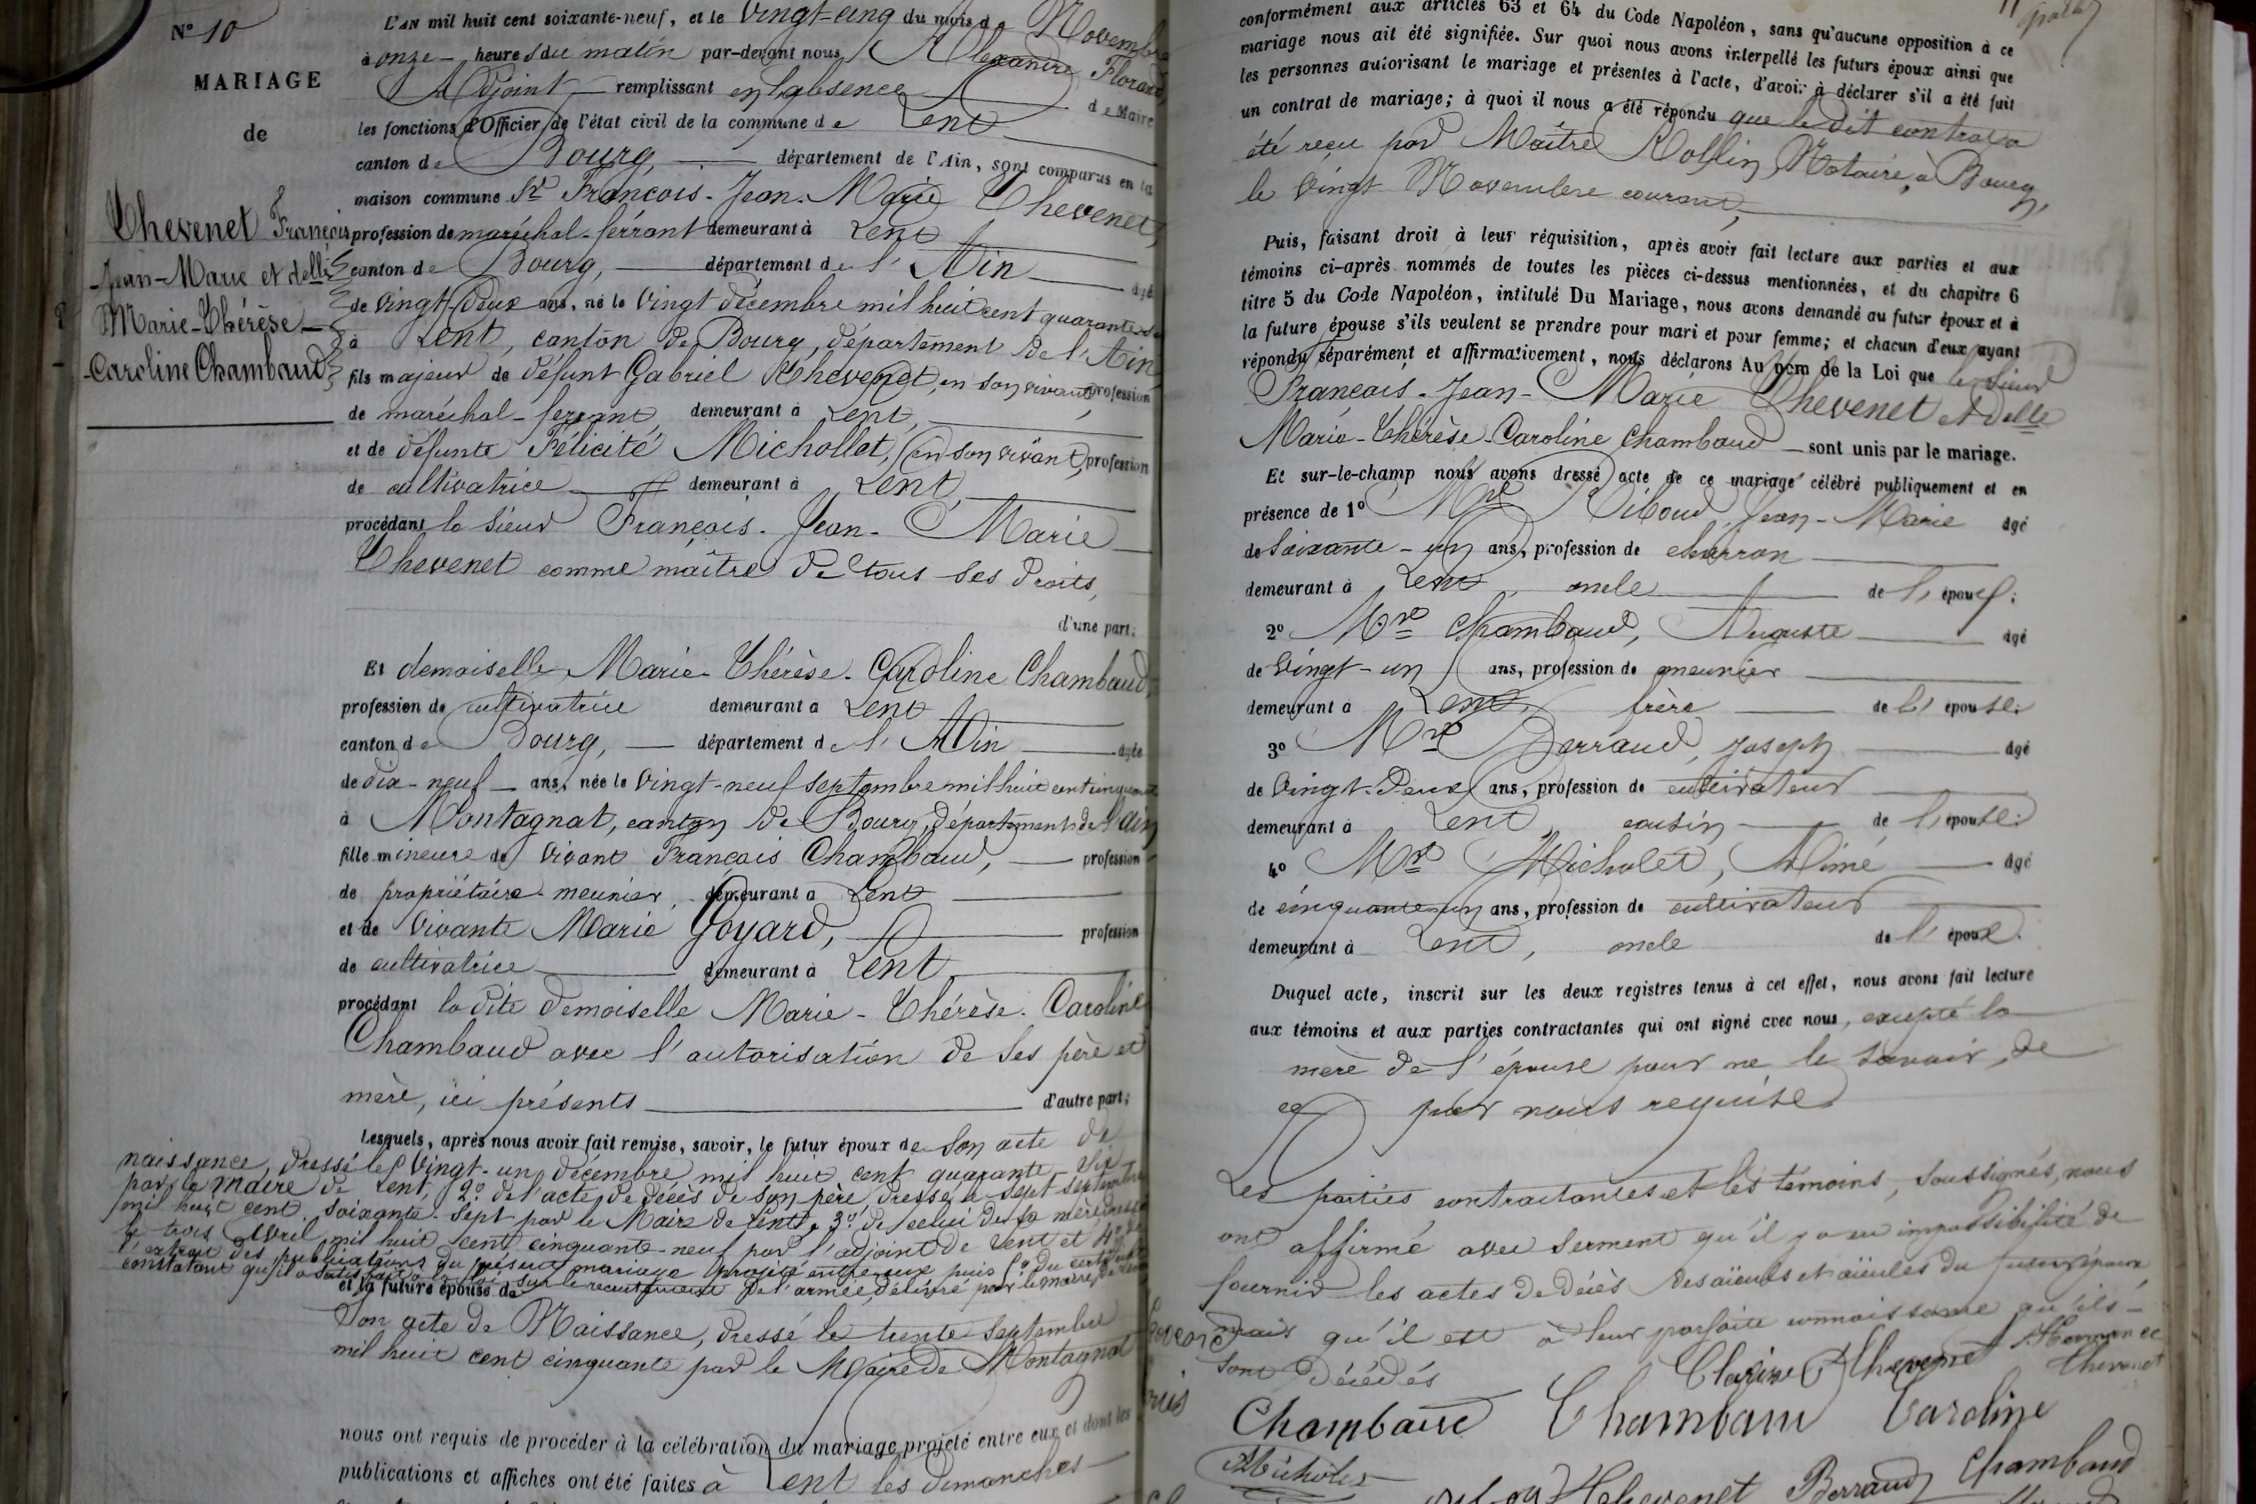 N° 10
MARIAGE
de
Chevenet François
Jean-Marie et delle
Marie-Thérèse
Caroline Chambaud
L'AN mil huit cent soixante-neuf, et le Vingt-cinq du mois de Novembre
à onze heures du matin par-devant nous Alexandre
Adjoint remplissant en l'absence de Maire
les fonctions d'Officier de l'état civil de la commune de Lent
canton de Bourg, département de l'Ain, sont comparus en la
maison commune Sr François-Jean-Marie Chevenet,
profession de maréchal-ferrant demeurant à Lent
canton de Bourg, département de l'Ain âgé
de vingt-deux ans, né le Vingt décembre mil huit cent quarante
à Lent, canton de Bourg, département de l'Ain
fils majeur de défunt Gabriel Chevenet, en son vivant profession
de maréchal-ferrant, demeurant à Lent,
et de défunte Félicité Michollet, (en son vivant) profession
de cultivatrice demeurant à Lent
procédant le sieur François-Jean-Marie
Chevenet comme maître de tous ses droits,
d'une part;
Et demoiselle Marie-Thérèse-Caroline Chambaud,
profession de cultivatrice demeurant à Lent
canton de Bourg, département de l'Ain âgée
de dix-neuf ans, née le vingt-neuf septembre mil huit cent cinquante
à Montagnat, canton de Bourg, département de l'Ain
fille mineure de vivant François Chambaud, profession
de propriétaire-meunier, demeurant à Lent
et de vivante Marie Goyard, profession
de cultivatrice demeurant à Lent
procédant la dite demoiselle Marie-Thérèse-Caroline
Chambaud avec l'autorisation de ses père et
mère, ici présents d'autre part;
Lesquels, après nous avoir fait remise, savoir, le futur époux de son acte de
naissance, dressé le vingt-un décembre mil huit cent quarante-six
par le maire de Lent, 2° de l'acte de décès de son père dressé le sept septembre
mil huit cent soixante-sept par le Maire de Lent, 3° de celui de sa mère dressé
le trois avril mil huit cent cinquante-neuf par l'adjoint de Lent et 4° de
l'extrait des publications du présent mariage projeté entre eux puis 5° du certificat
constatant qu'il a satisfait à la loi sur le recrutement de l'armée, délivré par le maire de Lent
et la future épouse de
Son acte de Naissance, dressé le trente septembre
mil huit cent cinquante par le Maire de Montagnat
nous ont requis de procéder à la célébration du mariage projeté entre eux et dont les
publications et affiches ont été faites à Lent les dimanches
conformément aux articles 63 et 64 du Code Napoléon, sans qu'aucune opposition à ce
mariage nous ait été signifiée. Sur quoi nous avons interpellé les futurs époux ainsi que
les personnes autorisant le mariage et présentes à l'acte, d'avoir à déclarer s'il a été fait
un contrat de mariage; à quoi il nous a été répondu que le dit contrat a
été reçu par Maître Rollin, Notaire, à Bourg,
le vingt Novembre courant,
Puis, faisant droit à leur réquisition, après avoir fait lecture aux parties et aux
témoins ci-après nommés de toutes les pièces ci-dessus mentionnées, et du chapitre 6
titre 5 du Code Napoléon, intitulé Du Mariage, nous avons demandé au futur époux et à
la future épouse s'ils veulent se prendre pour mari et pour femme; et chacun d'eux ayant
répondu séparément et affirmativement, nous déclarons Au nom de la Loi que le sieur
François-Jean-Marie Chevenet et delle
Marie-Thérèse-Caroline Chambaud sont unis par le mariage.
Et sur-le-champ nous avons dressé acte de ce mariage célébré publiquement et en
présence de 1° Mr Jean-Marie âgé
de soixante-un ans, profession de charron
demeurant à Lent, oncle de l'époux;
2° Mr Chambaud, Auguste âgé
de vingt-un ans, profession de meunier
demeurant à Lent, frère de l'épouse;
3° Mr Berraud, Joseph âgé
de vingt-deux ans, profession de cultivateur
demeurant à Lent, cousin de l'épouse;
4° Mr Micholet, Aimé âgé
de cinquante-un ans, profession de cultivateur
demeurant à Lent, oncle de l'époux.
Duquel acte, inscrit sur les deux registres tenus à cet effet, nous avons fait lecture
aux témoins et aux parties contractantes qui ont signé avec nous, excepté la
mère de l'épouse pour ne le savoir, de
ce par nous requise
Les parties contractantes et les témoins, soussignés, nous
ont affirmé avec serment qu'il y a eu impossibilité de
fournir les actes de décès des aïeuls et aïeules du futur époux
mais qu'il est à leur parfaite connaissance qu'ils
sont décédés
Chevenet
Chevenet
Chambaud Chambaud Caroline
Michol Chevenet Berraud Chambaud